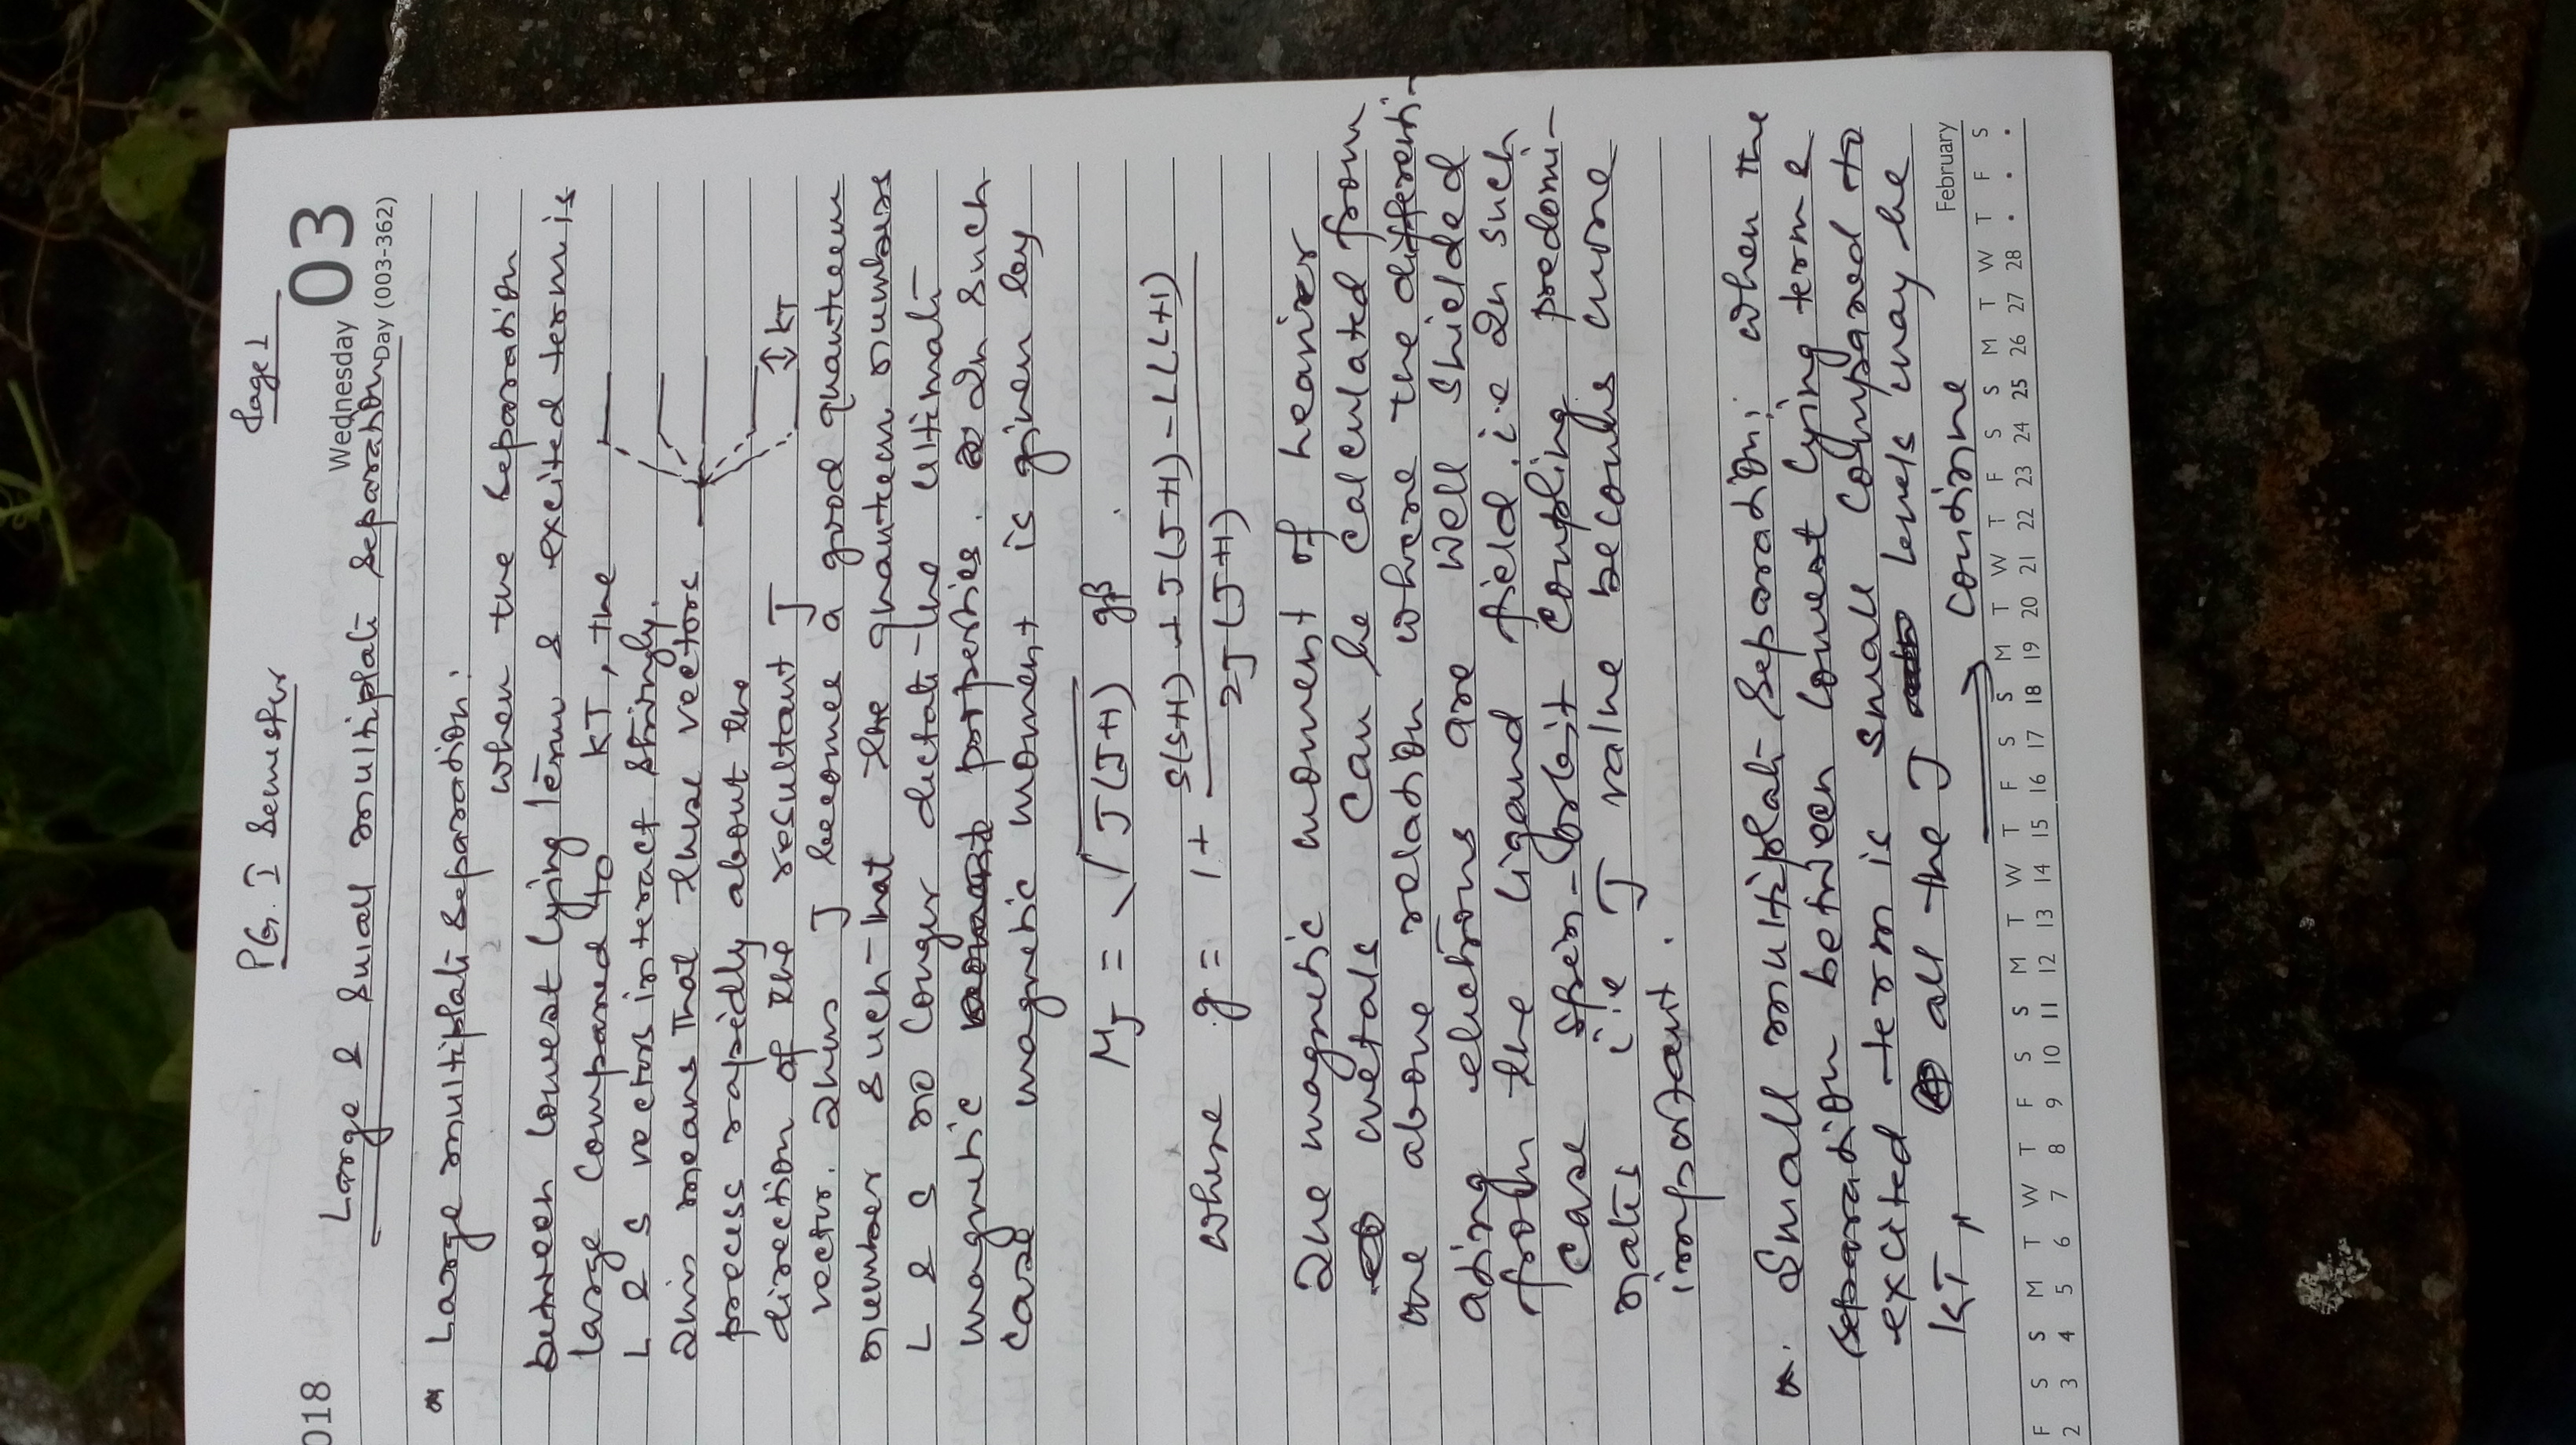 P.G. I Semester Page 1
018 Wednesday 03
Large & Small multiplate separation Day (003-362)
* Large multiplate separation:
when the separation
between lowest lying term & excited term is
large compared to kT, the
L & S vectors interact strongly.
This means that these vectors
process rapidly about the
direction of the resultant J ↕ kT
vector. Thus J become a good quanteem
number such that the quanteem numbers
L & S no longer dictate the ultimate
magnetic properties. In such
case magnetic moment is given by
μJ = √J(J+1) gβ
where g = 1 + S(S+1) + J(J+1) - L(L+1)
2J(J+1)
The magnetic moment of heavier
metals can be calculated from
the above relation where the differenti-
ating electrons are well shielded
from the ligand field. i.e In such
case spin-orbit coupling predomi-
nates i.e J value becomes curve
important.
*. Small multiplate separation: when the
separation between lowest lying term &
excited term is small compared to
kT, all the J levels may be
continue
February
F S S M T W T F S S M T W T F S S M T W T F S S M T W T F S
2 3 4 5 6 7 8 9 10 11 12 13 14 15 16 17 18 19 20 21 22 23 24 25 26 27 28 . . .